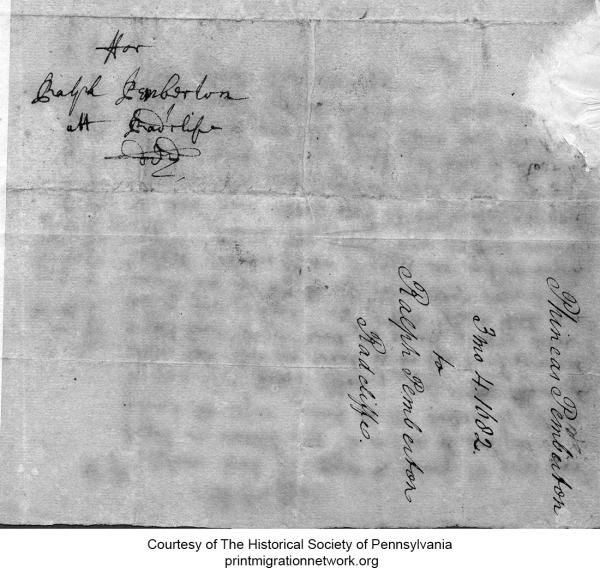 ffor
Ralph Pemberton
att Radclife
ddd
Phineas Pemberton
3 mo 4. 1682.
to
Ralph Pemberton
Radcliffe.
Courtesy of The Historical Society of Pennsylvania
printmigrationnetwork.org